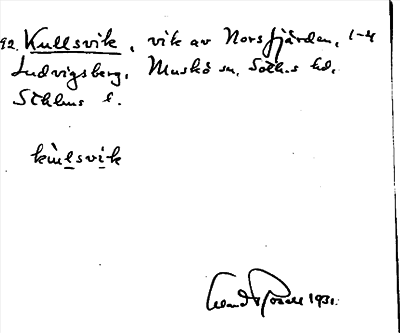 92. Kullsvik, vik av Norsfjärden, 1-4
Ludvigsberg, Muskö sn, Soth.s hd,
Sthlms l.
kùlsvik
1931.